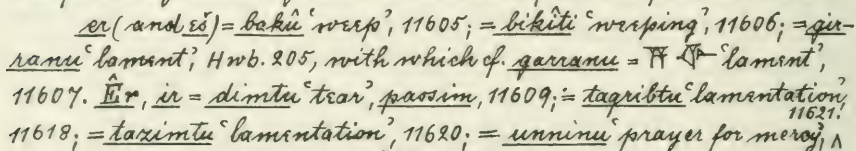 er (and eš) = bakû ‘weep’, 11605; = bikîti ‘weeping’, 11606; = gir-
ranu ‘lament’, Hwb. 205, with which cf. garranu = ‘lament’,
11607. Êr, ir = dimtu ‘tear’, passim, 11609; = taqribtu ‘lamentation’,
11618; = tazimtu ‘lamentation’, 11620; = unninu ‘prayer for mercy’, 11621.